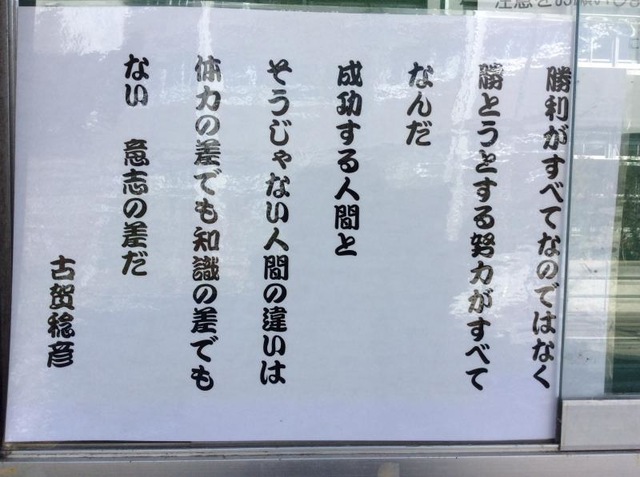 注意をお願いし
勝利がすべてなのではなく
勝とうとする努力がすべて
なんだ
成功する人間と
そうじゃない人間の違いは
体力の差でも知識の差でも
ない　意志の差だ
古賀稔彦